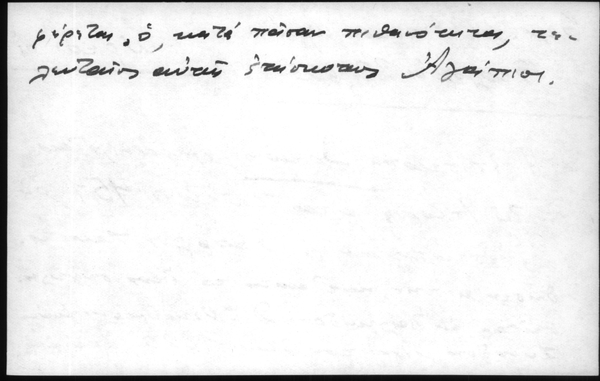 φέρεται, ὁ, κατά πᾶσαν πιθανότητα, τε-
λευταῖος αὐτῆς ἐπίσκοπος Ἀγάπιος.